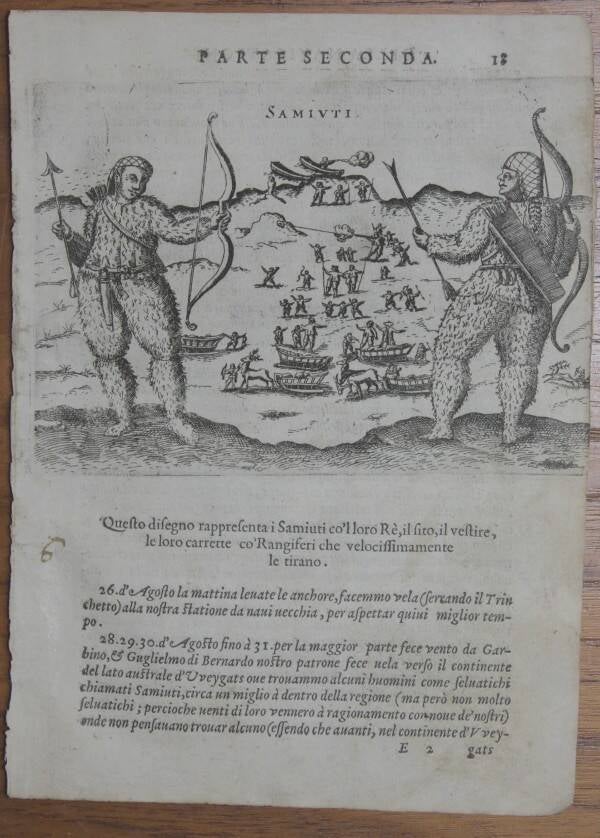 PARTE SECONDA. 18
SAMIVTI.
Queſto diſegno rappreſenta i Samiuti co'l loro Rè, il ſito, il veſtire,
le loro carrette co'Rangiferi che velociſſimamente
le tirano.
6
26. d'Agoſto la mattina leuate le anchore, facemmo vela (ſercando il Trin
chetto) alla noſtra ſtatione da naui uecchia, per aſpettar quiui miglior tem-
po.
28.29.30. d'Agoſto fino à 31. per la maggior parte fece vento da Gar-
bino, & Guglielmo di Bernardo noſtro patrone fece uela verſo il continente
del lato auſtrale d'Vveygats oue trouammo alcuni huomini come ſeluatichi
chiamati Samiuti, circa un miglio à dentro della regione (ma però non molto
ſeluatichi; percioche uenti di loro vennero à ragionamento con noue de'noſtri)
onde non penſauano trouar alcuno (eſſendo che auanti, nel continente d'Vvey-
E 2 gats